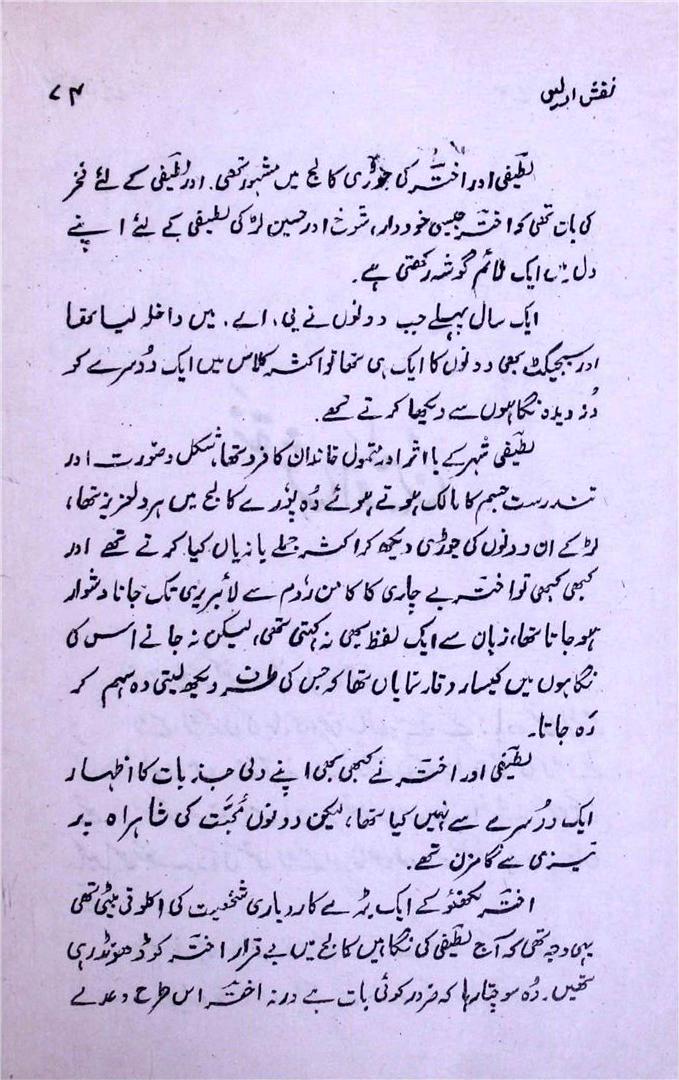 نقش اولیں
۷۴
لطیفی اور اختر کی جوڑی کالج میں مشہور تھی۔ اور لطیفی کے لئے فخر
کی بات تھی کہ اختر جیسی خوددار، شوخ اور حسین لڑکی لطیفی کے لئے اپنے
دل میں ایک ملائم گوشہ رکھتی ہے۔
ایک سال پہلے جب دونوں نے بی۔ اے۔ میں داخلہ لیا تھا
اور سبجیکٹ بھی دونوں کا ایک ہی تھا تو اکثر کلاس میں ایک دوسرے کو
دُزدیدہ نگاہوں سے دیکھا کرتے تھے۔
لطیفی شہر کے با اثر اور متمول خاندان کا فرد تھا، شکل و صورت اور
تندرست جسم کا مالک ہوتے ہوئے وُہ پُورے کالج میں ہردلعزیز تھا،
لڑکے ان دونوں کی جوڑی دیکھ کر اکثر جملے بازیاں کیا کرتے تھے اور
کبھی کبھی تو اختر بے چاری کا کامن رُوم سے لائبریری تک جانا دشوار
ہو جاتا تھا، زبان سے ایک لفظ بھی نہ کہتی تھی، لیکن نہ جانے اس کی
نگاہوں میں کیسا وقار نمایاں تھا کہ جس کی طرف دیکھ لیتی وہ سہم کر
رَہ جاتا۔
لطیفی اور اختر نے کبھی بھی اپنے دلی جذبات کا اظہار
ایک دوسرے سے نہیں کیا تھا، لیکن دونوں مُحبّت کی شاہراہ پر
تیزی سے گامزن تھے۔
اختر لکھنؤ کے ایک بڑے کاروباری شخصیت کی اکلوتی بیٹی تھی
یہی وجہ تھی کہ آج لطیفی کی نگاہیں کالج میں بے قرار اختر کو ڈھونڈ رہی
تھیں۔ وُہ سوچتا رہا کہ ضرور کوئی بات ہے ورنہ اختر اس طرح وعدے